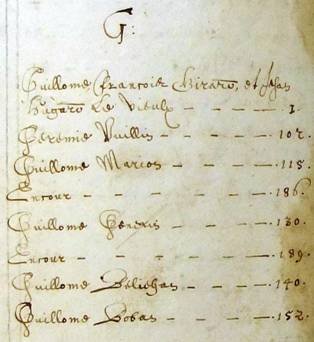 G:
Guillome François Girard, et Jean
Hugard Le Vieulx - - - - - 1.
Jeremie Vuillin - - - - 102.
Guillome Marion - - - - 115.
Encour - - - - - - 186.
Guillome Henrin - - - - 130.
Encour - - - - - - 189.
Guillome - - - - 140.
Guillome Boban - - - - 152.